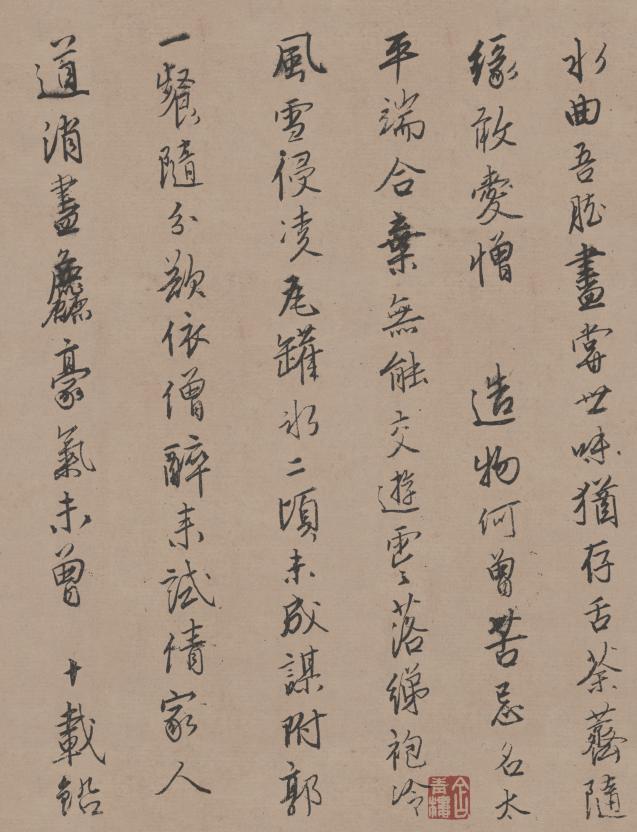 水曲吾肱盡嘗世味猶存舌茶薺隨
緣敢愛憎 造物何曾苦忌名太
平端合棄無能交遊雲雲落綈袍冷
風雪侵凌瓦罐冰二頃未成謀附郭
一餐隨分欲依僧醉來試倩家人
道消盡麤豪氣未曾 十載鉛